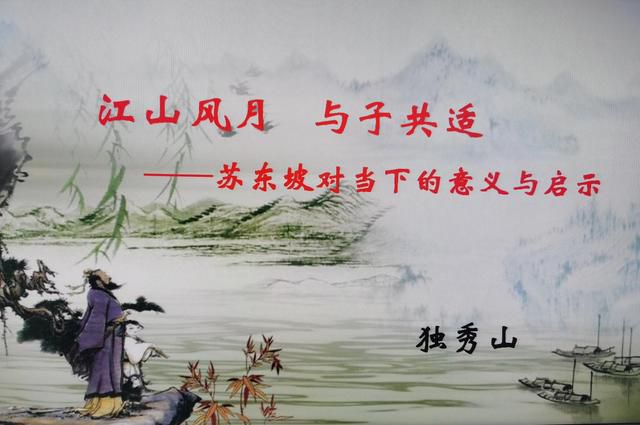 江山风月 与子共适
——苏东坡对当下的意义与启示
独秀山